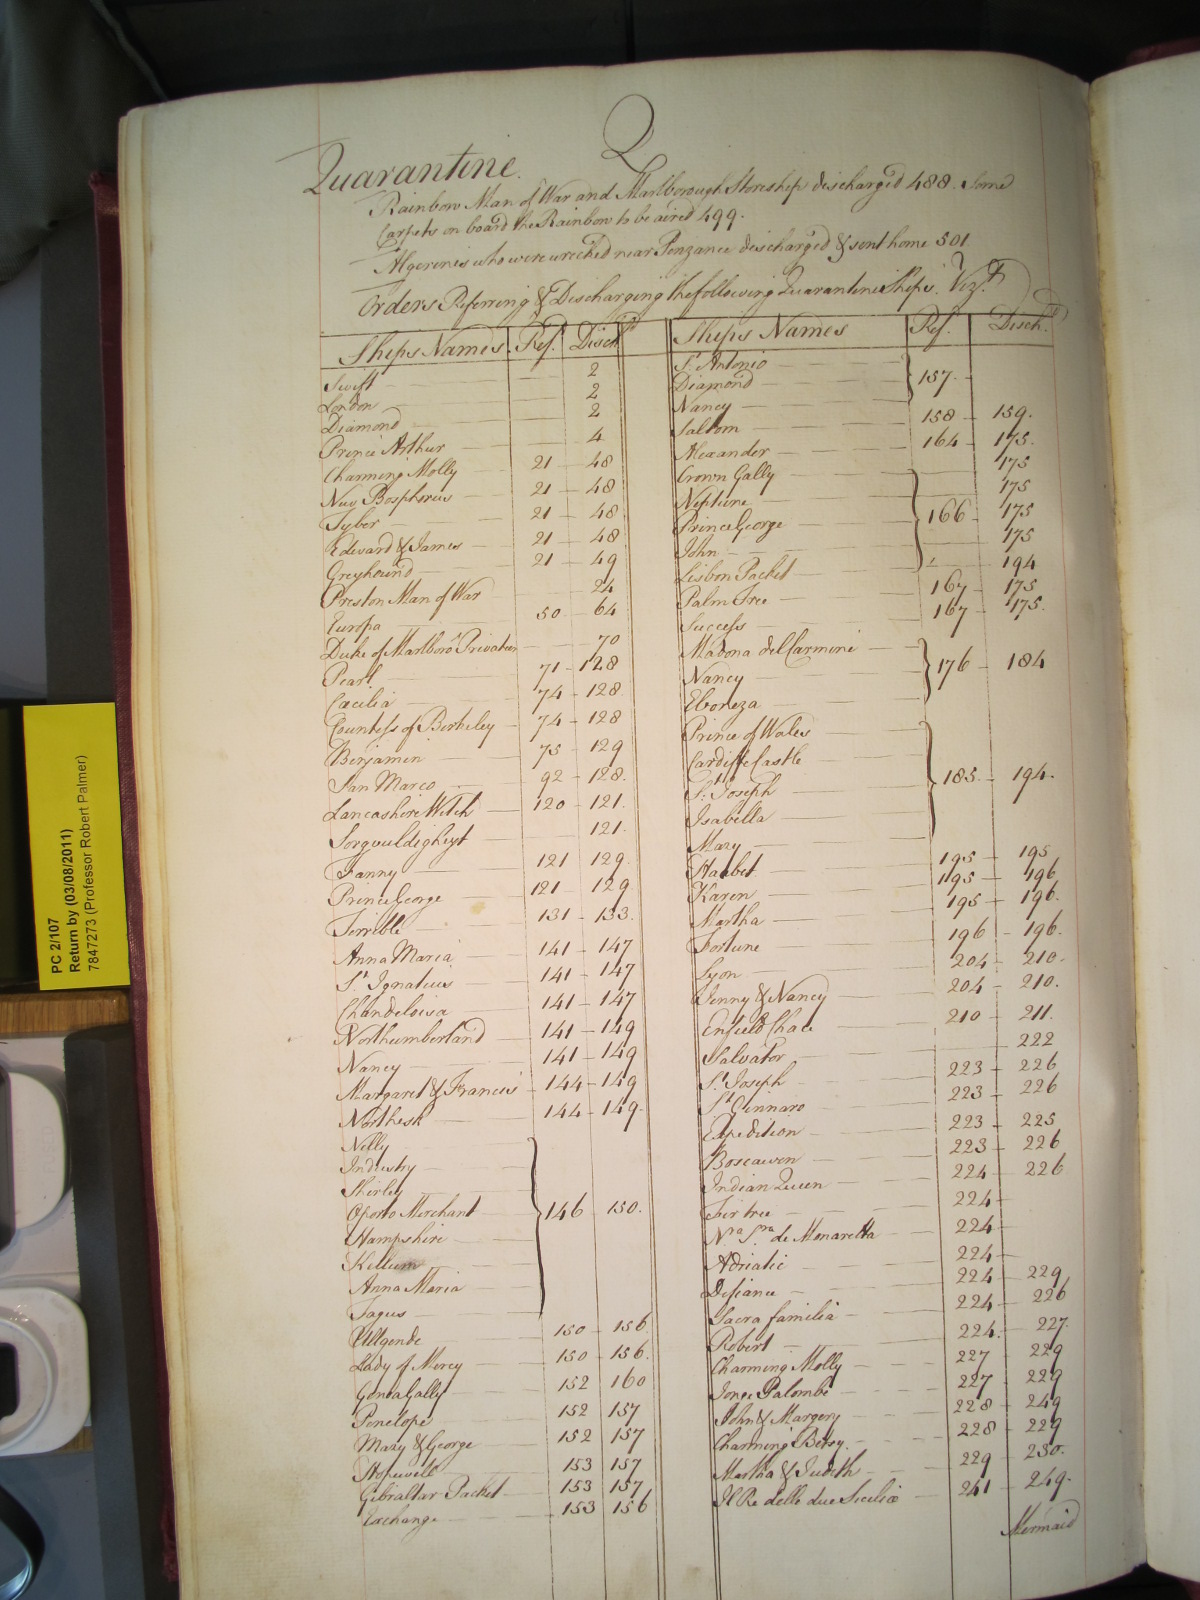 Q
Quarantine.
Rainbow Man of War and Marlborough Storeship discharged 488. Some
Carpets on board the Rainbow to be aired 499.
Algerines who were wrecked near Penzance discharged & sent home 501
Orders Referring & Discharging the following Quarantine Ships. Vizt.
Ships Names. Ref. Dischd
Swift 2
London 2
Diamond 2
Prince Arthur 4
Charming Molly 21 - 48
New Bosphorus 21 - 48
Tyber 21 - 48
Edward & James 21 - 48
Greyhound 21 - 49
Preston Man of War 24
Europa 50 - 64
Duke of Marlboro's Privateer 70
Pearl 71 - 128
Cæcilia 74 - 128
Countess of Berkeley 74 - 128
Benjamin 75 - 129
San Marco 92 - 128.
Lancashire Witch 120 - 121.
Sorgvuldigheyt 121.
Fanny 121 129.
Prince George 121 - 129
Terrible 131 - 133.
Anna Maria 141 - 147
St. Ignatius 141 - 147
Chandeloisa 141 - 147
Northumberland 141 - 149
Nancy 141 - 149
Margaret & Frances 144 - 149
Northesk 144 - 149.
Nelly
Industry
Shirley
Oporto Merchant 146 150.
Hampshire
Kellum
Anna Maria
Tagus
Ullgende 150 - 156.
Lady of Mercy 150 - 156.
Genoa Gally 152 160
Penelope 152 157
Mary & George 152 157
Hopewell 153 157
Gibraltar Packet 153 157
Exchange 153 156
Ships Names Ref. Dischd
St. Antonio
Diamond 157.
Nancy
Saltom 158 - 159.
Alexander 164 - 175.
Crown Gally 175
Neptune 175
Prince George 166 175
John 175
Lisbon Packet 194
Palm Tree 167 - 175
Success 167 - 175.
Madona del Carmine
Nancy 176 - 184
Eboreza
Prince of Wales
Cardiffe Castle
St. Joseph 185 - 194.
Isabella
Mary
Haabet 195 - 195
Karen 195 - 196
Martha 195 - 196.
Fortune 196 - 196.
Lyon 204 - 210.
Jenny & Nancy 204 - 210.
Enfield Chace 210 - 211.
Salvator 222
St. Joseph 223 - 226
St. Gennaro 223 - 226
Expedition 223 - 225
Boscawen 223 - 226
Indian Queen 224 - 226
Fir tree 224
Nra. Sra. de Monaretta 224
Adriatic 224
Defiance 224 - 229
Sacra familia 224 - 226
Robert 224. 227.
Charming Molly 227 - 229
Jonge Palombe 227 - 229
John & Margery 228 - 249
Charming Betsy. 228 - 229
Martha & Judith 229 - 230.
Il Re delle due Siciliæ 241 - 249.
Mermaid
PC 2/107
Return by (03/08/2011)
7847273 (Professor Robert Palmer)